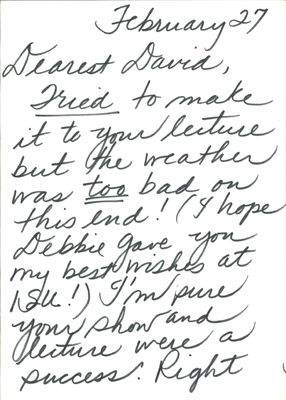 February 27
Dearest David,
Tried to make
it to your lecture
but the weather
was too bad on
this end! (I hope
Debbie gave you
my best wishes at
ISU!) I'm sure
your show and
lecture were a
success. Right